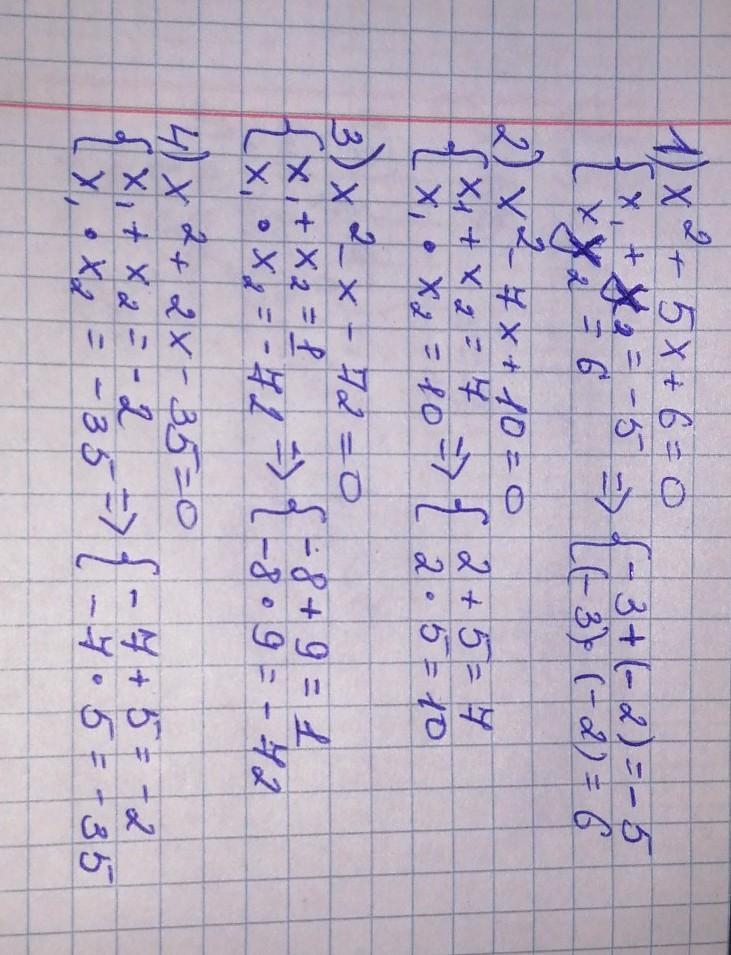 1) x² + 5x + 6 = 0
{ x₁ + x₂ = -5
x x₂ = 6 => { -3 + (-2) = -5
(-3) · (-2) = 6
2) x² - 7x + 10 = 0
{ x₁ + x₂ = 7
x₁ · x₂ = 10 => { 2 + 5 = 7
2 · 5 = 10
3) x² - x - 72 = 0
{ x₁ + x₂ = 1
x₁ · x₂ = -72 => { -8 + 9 = 1
-8 · 9 = -72
4) x² + 2x - 35 = 0
{ x₁ + x₂ = -2
x₁ · x₂ = -35 => { -7 + 5 = -2
-7 · 5 = -35